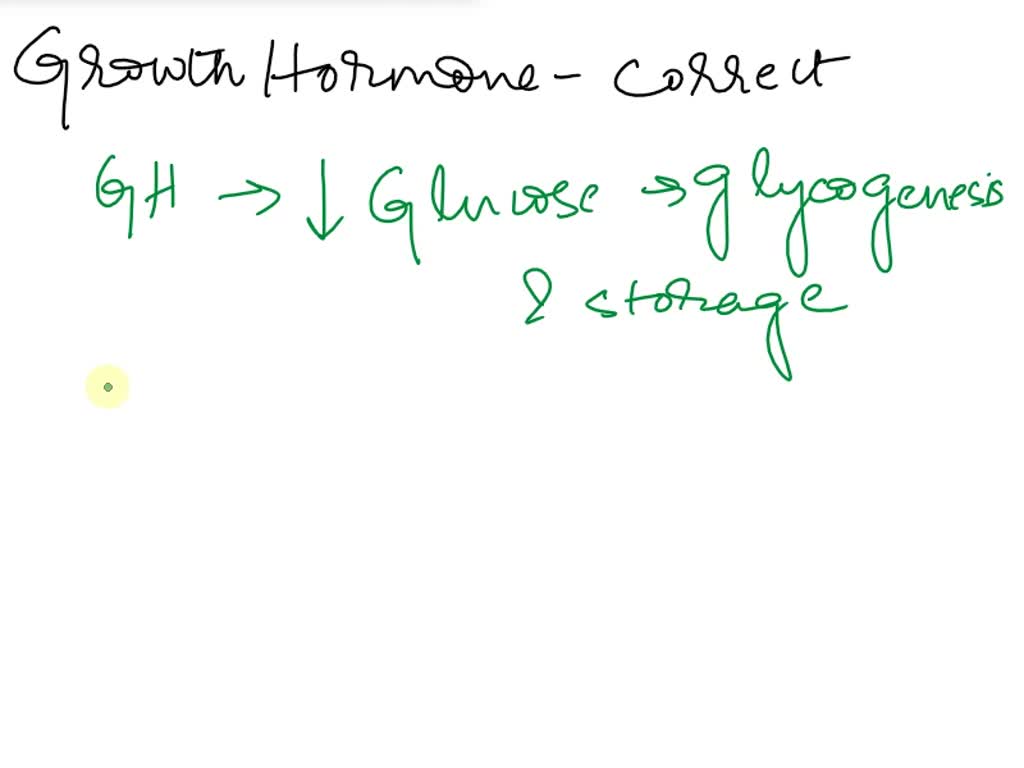 Growth Hormone - correct
GH → ↓ Glucose → glycogenesis
& storage